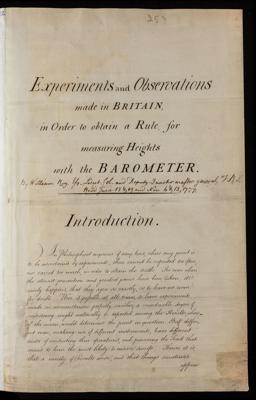 253
Experiments and Observations
made in BRITAIN,
in Order to obtain a Rule, for
measuring Heights
with the BAROMETER.
By William Roy Esq. Lieut. Col. and Deputy Quarter-master general, F.R.S.
Read June 12 & 19 and Nov. 6 & 13, 1777.
Introduction.
In Philosophical inquiries of any kind, where any point is
to be ascertained by experiments, these cannot be repeated too often,
or varied too much, in order to obtain the truth. For even when
the utmost precaution and greatest pains have been taken, it
rarely happens that they agree so exactly, as to leave no room
for doubt. Were it possible at all times, to have experiments
made in circumstances perfectly similar, a considerable degree of
consistency might naturally be expected among the Results,
of the mean would determine the point in question: But different
men, making use of different instruments, have different
modes of conducting their operations, and pursuing the Track that
seems to them the most likely to insure success. Hence it is,
that a variety of Results arise, and that things sometimes
appear